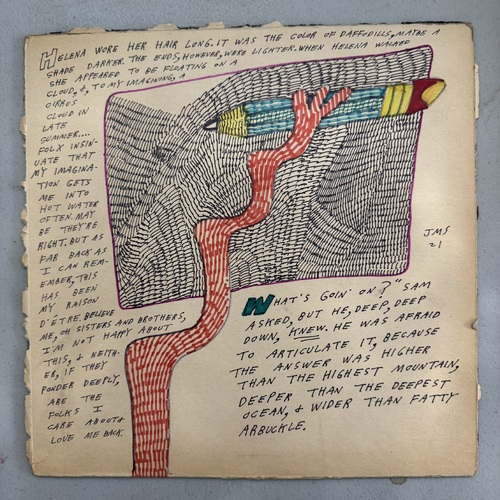 HELENA WORE HER HAIR LONG. IT WAS THE COLOR OF DAFFODILLS, MAYBE A
SHADE DARKER. THE ENDS, HOWEVER, WERE LIGHTER. WHEN HELENA WALKED
SHE APPEARED TO BE FLOATING ON A
CLOUD, &, TO MY IMAGINING, A
CIRRUS
CLOUD IN
LATE
SUMMER....
FOLX INSIN-
UATE THAT
MY IMAGINA-
TION GETS
ME INTO
HOT WATER
OFTEN. MAY
BE THEY'RE
RIGHT. BUT AS
FAR BACK AS
I CAN REM-
EMBER, THIS
HAS BEEN
MY RAISON
D'ETRE. BELIEVE
ME, OH SISTERS AND BROTHERS,
I'M NOT HAPPY ABOUT
THIS, & NEITH-
ER, IF THEY
PONDER DEEPLY,
ARE THE
FOLKS I
CARE ABOUT &
LOVE ME BACK.
JMS
21
WHAT'S GOIN' ON?" SAM
ASKED, BUT HE, DEEP, DEEP
DOWN, KNEW. HE WAS AFRAID
TO ARTICULATE IT, BECAUSE
THE ANSWER WAS HIGHER
THAN THE HIGHEST MOUNTAIN,
DEEPER THAN THE DEEPEST
OCEAN, & WIDER THAN FATTY
ARBUCKLE.